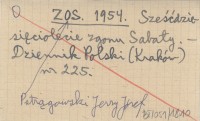 ZOS. 1954. Sześćdzie-
sięciolecie zgonu Sabały. –
Dziennik Polski (Kraków)
nr 225.
Petrągowski Jerzy Józef